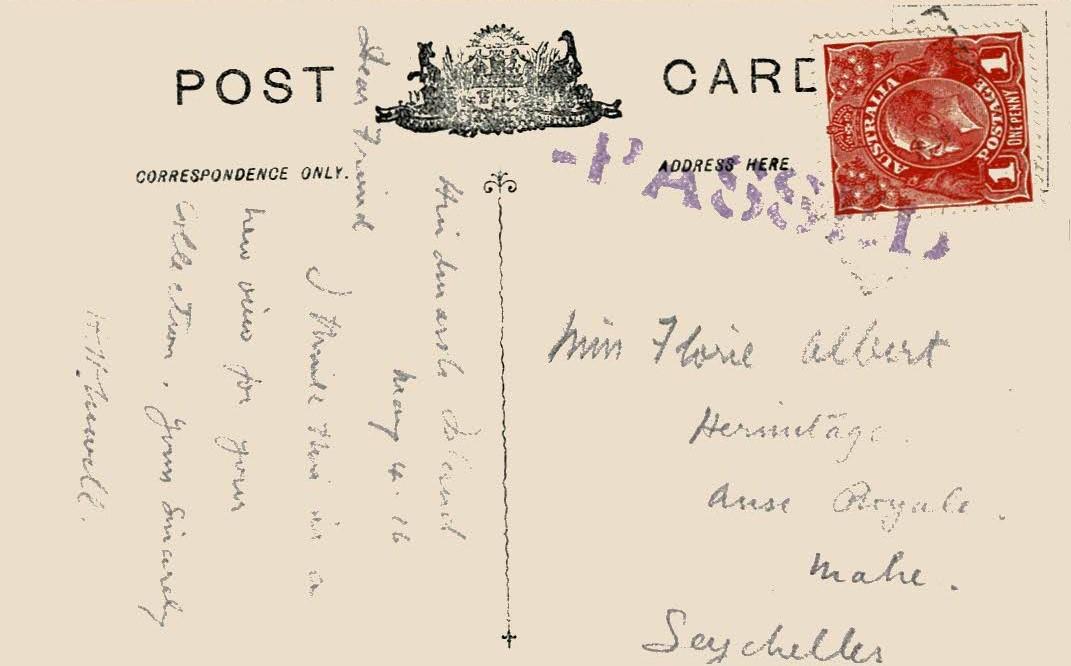 POST CARD
CORRESPONDENCE ONLY.
ADDRESS HERE.
AUSTRALIA
POSTAGE
1
1
ONE PENNY
PASSED
Hindmarsh Island
May 4. 16
Dear Friend
I think this is a
new view for your
Collection. Yours Sincerely
Miss Florie Albert
Hermitage.
Anse Royale.
Mahe.
Seychelles